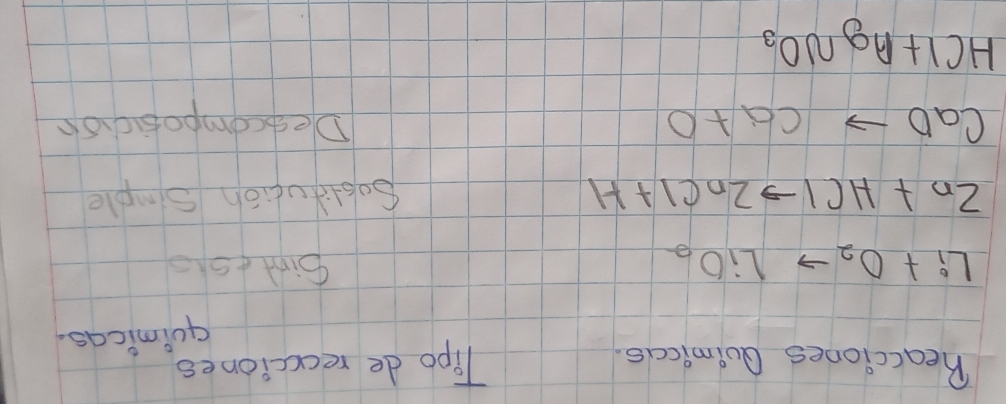 Reacciones Quimicas. Tipo de reacciones quimicas.
Li + O₂ → LiO₂ Sintesis
Zn + HCl → ZnCl + H Sustitución Simple
CaO → Ca + O Descomposición
HCl + AgNO₃